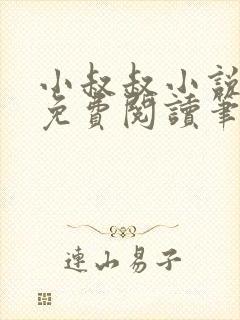 小叔叔小說
免費閱讀筆
連山易子